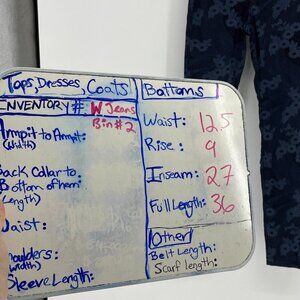 Tops, Dresses, Coats
INVENTORY #: W Jeans
Bin #2
Armpit to Armpit:
(Width)
Back Collar to
Bottom of hem:
(Length)
Waist:
Shoulders:
(Width)
Sleeve Length:
Bottoms
Waist: 12.5
Rise: 9
Inseam: 27
Full Length: 36
Other
Belt Length:
Scarf length: